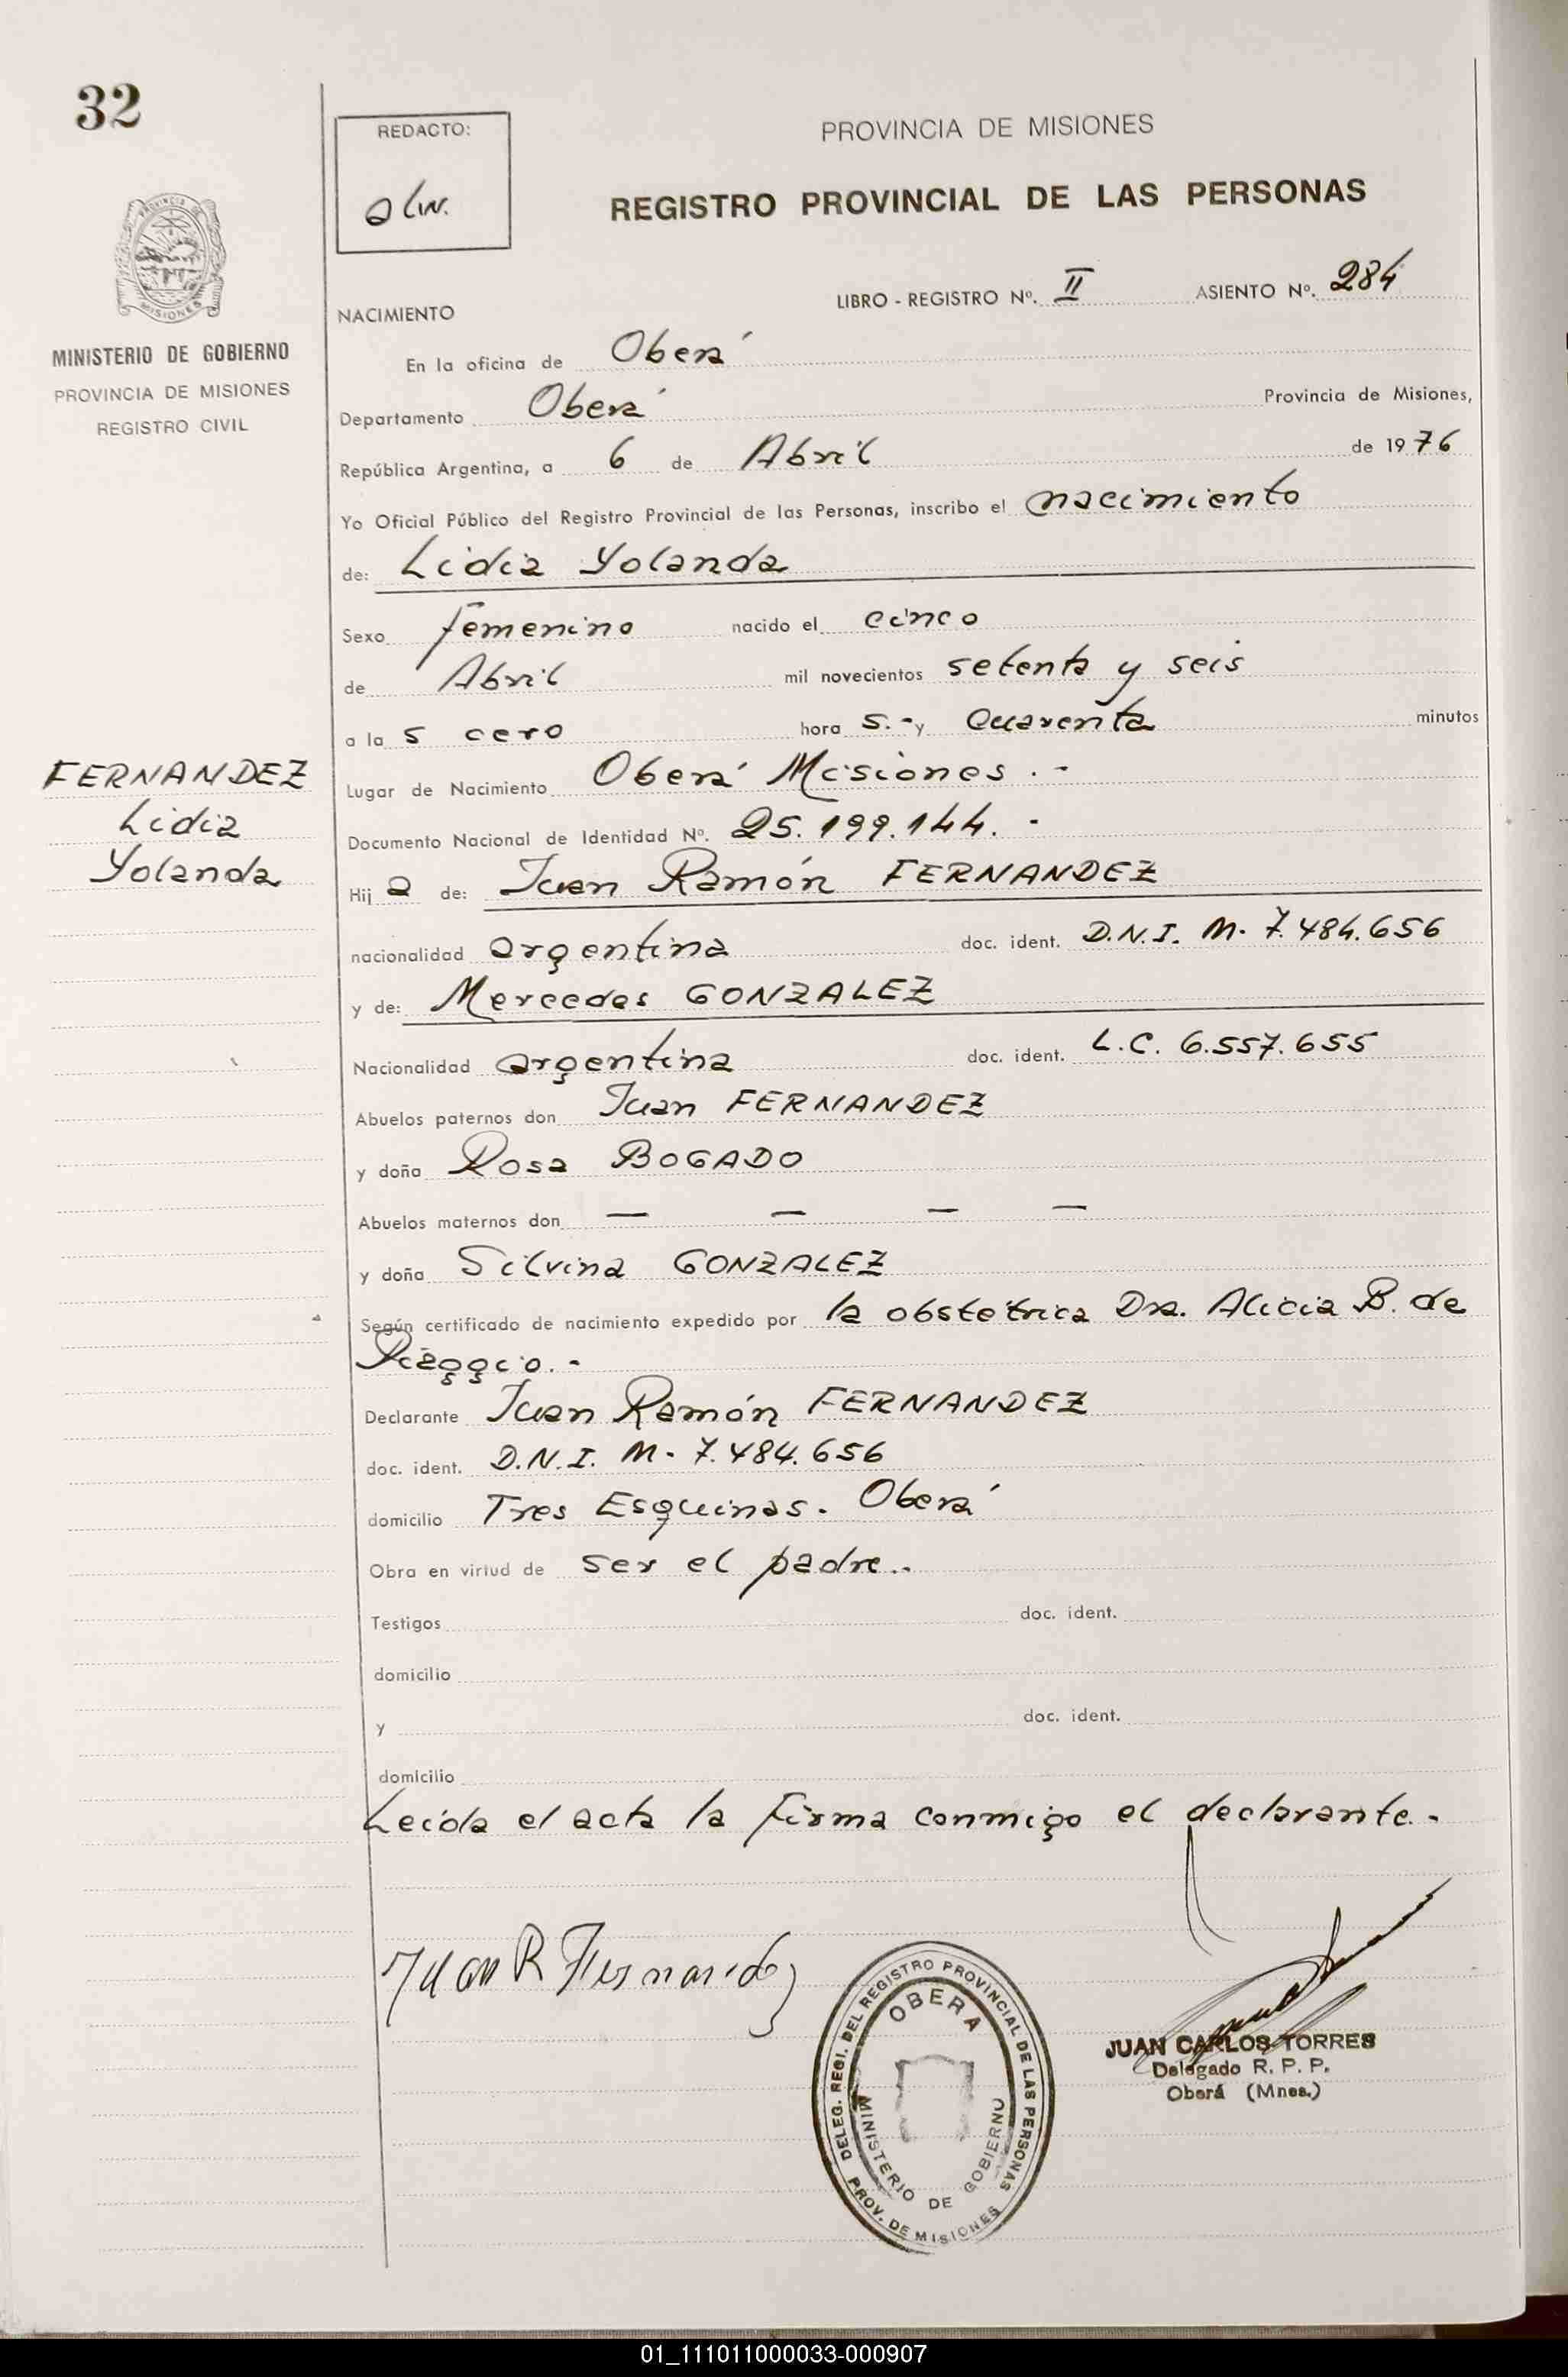 32
REDACTO:
PROVINCIA DE MISIONES
REGISTRO PROVINCIAL DE LAS PERSONAS
PROVINCIA DE
MISIONES
MINISTERIO DE GOBIERNO
PROVINCIA DE MISIONES
REGISTRO CIVIL
LIBRO - REGISTRO Nº. II ASIENTO Nº. 284
NACIMIENTO
En la oficina de Oberá
Departamento Oberá Provincia de Misiones,
República Argentina, a 6 de Abril de 1976
Yo Oficial Público del Registro Provincial de las Personas, inscribo el nacimiento
de: Lidia Yolanda
Sexo femenino nacido el cinco
de Abril mil novecientos setenta y seis
a la s cero hora s.- y cuarenta minutos
FERNANDEZ
Lidia
Yolanda
Lugar de Nacimiento Oberá Misiones.-
Documento Nacional de Identidad Nº. 25.199.144.-
Hij a de: Juan Ramón FERNANDEZ
nacionalidad argentina doc. ident. D.N.I. M. 7.484.656
y de: Mercedes GONZALEZ
Nacionalidad argentina doc. ident. L.C. 6.557.655
Abuelos paternos don Juan FERNANDEZ
y doña Rosa BOGADO
Abuelos maternos don — — — —
y doña Silvina GONZALEZ
Según certificado de nacimiento expedido por la obstetrica Dra. Alicia B. de
Declarante Juan Ramón FERNANDEZ
doc. ident. D.N.I. M- 7.484.656
domicilio Tres Esquinas. Oberá
Obra en virtud de ser el padre..
Testigos doc. ident.
domicilio
y doc. ident.
domicilio
Leida el acta la firma conmigo el declarante.-
Juan R Fernandez
DELEG. REGI. DEL REGISTRO PROVINCIAL DE LAS PERSONAS
PROV. DE MISIONES
OBERA
MINISTERIO DE GOBIERNO
JUAN CARLOS TORRES
Delegado R. P. P.
Oberá (Mnes.)
01_111011000033-000907